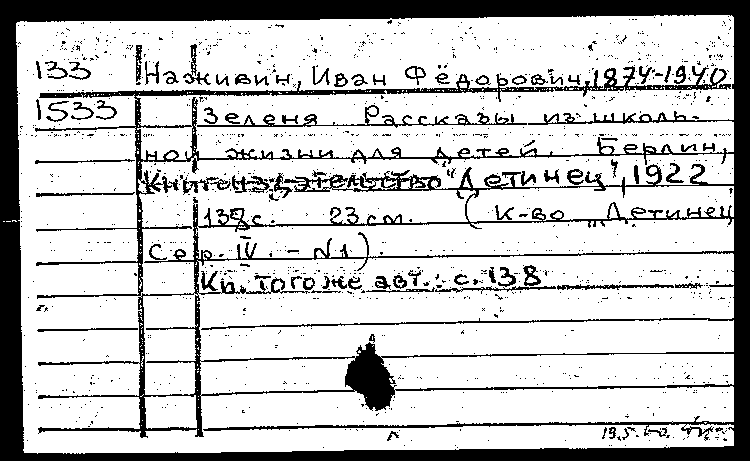 133 Наживин, Иван Фёдорович, 1874-1940
1533 Зеленя. Рассказы из школь-
ной жизни для детей. Берлин,
Книгоиздательство "Детинец", 1922
138с. 23см. (К-во „Детинец
Сер. IV. - N1).
Кн. того же авт.: с. 138
19.5.60.